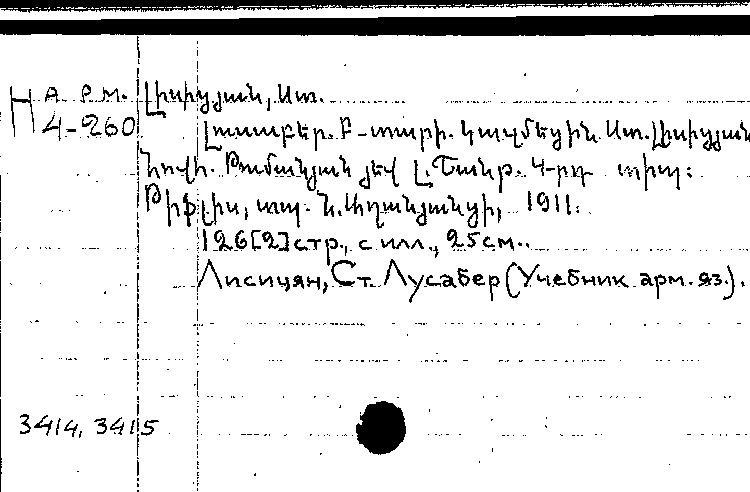 Н арм. Լիսիցյան, Ստ.
4-260
Լուսաբեր. Բ-տարի. Կազմեցին Ստ. Լիսիցյան
Հովհ. Թումանյան յեվ Լ. Շանթ. 4-րդ տիպ:
Թիֆլիս, տպ. Ն. Աղանյանցի, 1911.
126[2] стр., с илл., 25см..
Лисицян, Ст. Лусабер (Учебник арм. яз.).
3414, 3415